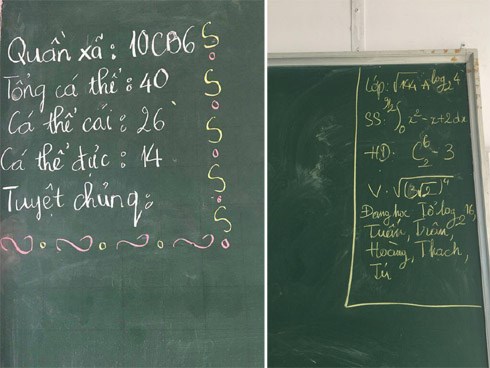 Quần xã: 10CB6
Tổng cá thể: 40
Cá thể cái: 26
Cá thể đực: 14
Tuyệt chủng:
Lớp: √144 A log₂4
SS: ∫ x² - x + 2dx
V: 
Đang học Tổ log₂16
Tuấn, Trân
Hoàng, Thạch,
Tú